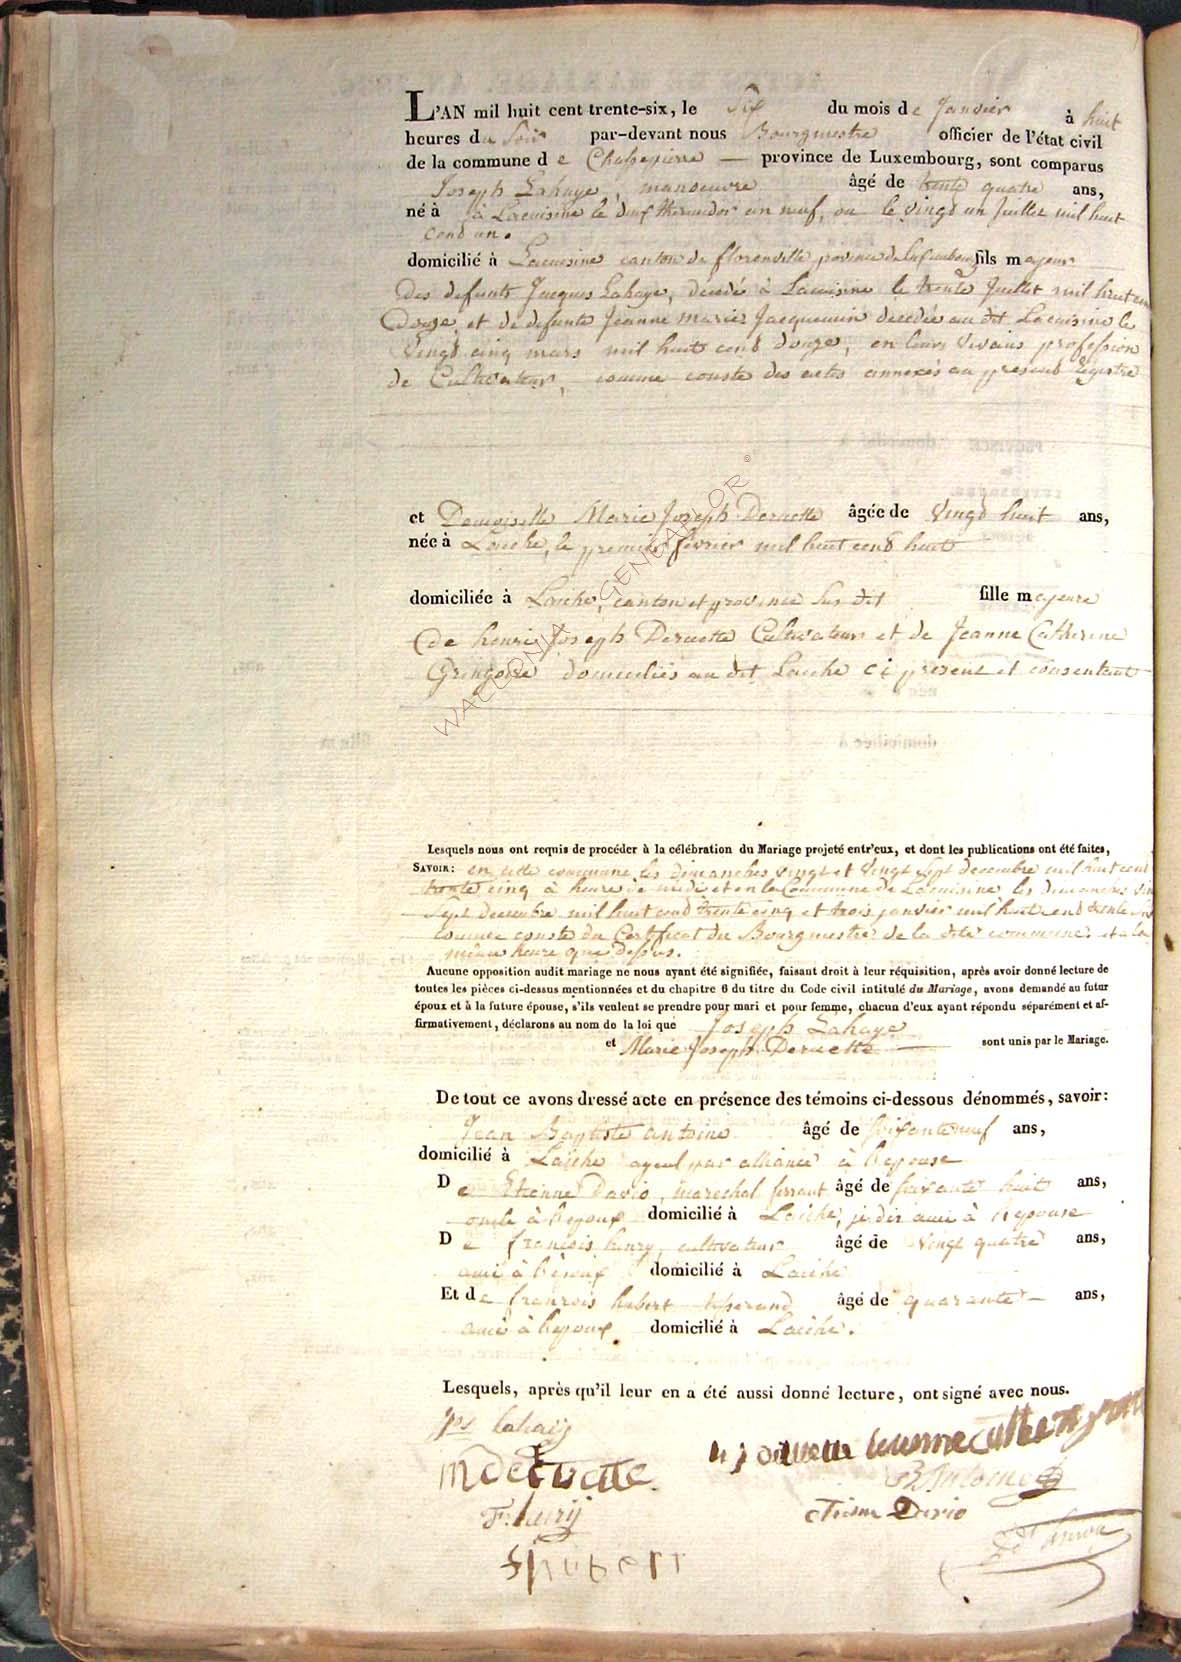 L'AN mil huit cent trente-six, le Six du mois de Janvier à huit
heures du Soir par-devant nous Bourgmestre officier de l'état civil
de la commune de Chassepierre — province de Luxembourg, sont comparus
Joseph Lahaye, manoeuvre âgé de trente quatre ans,
né à à Lacuisine le deux thermidor an neuf, ou le vingt un Juillet mil huit
cend un.
domicilié à Lacuisine canton de florenville province de Luxembourg fils majeur
Des defunts Jacques Lahaye, décédé à Lacuisine le trente Juillet mil huit cen
Douze, et de defunte Jeanne Marie Jacquemin decedée au dit Lacuisine le
Vingt cinq mars mil huit cend douze, en leurs vivans profession
de Cultivateur, comme conste des actes annexés au present Régistre
et Demoiselle Marie Joseph Deruette âgée de Vingt huit ans,
née à Laiche, le premier février mil huit cend huit
domiciliée à Laiche, canton et province sus dit fille majeure
De henri Joseph Deruette Cultivateur et de Jeanne Catherine
Gringoire domiciliés au dit Laiche ci présent et consentant
WALLONIA GENGAPLOR ©
Lesquels nous ont requis de procéder à la célébration du Mariage projeté entr'eux, et dont les publications ont été faites,
SAVOIR: en cette commune les dimanches vingt et Vingt Sept decembre mil huit cent
trente cinq à heure de midi et en la Commune de Lacuisine les dimanches vin
Sept Decembre mil huit cend trente cinq et trois janvier mil huit cend trente six
comme conste du Certificat du Bourgmestre de la dite commune. et à la
même heure que dessus.
Aucune opposition audit mariage ne nous ayant été signifiée, faisant droit à leur réquisition, après avoir donné lecture de
toutes les pièces ci-dessus mentionnées et du chapitre 6 du titre du Code civil intitulé du Mariage, avons demandé au futur
époux et à la future épouse, s'ils veulent se prendre pour mari et pour femme, chacun d'eux ayant répondu séparément et af-
firmativement, déclarons au nom de la loi que Joseph Lahaye
et Marie Joseph Deruette — sont unis par le Mariage.
De tout ce avons dressé acte en présence des témoins ci-dessous dénommés, savoir:
Jean Baptiste antoine âgé de soixante neuf ans,
domicilié à Laiche ayeul par alliance à l'epouse
De Etienne Dario, marechal ferrant âgé de soixante huit ans,
oncle à l'epoux domicilié à Laiche, je dis ami à l'epouse
De françois henry cultivateur âgé de Vingt quatre ans,
ami à l'epoux domicilié à Laiche
Et de françois hubert âgé de quarante — ans,
ami à l'epoux domicilié à Laiche.
Lesquels, après qu'il leur en a été aussi donné lecture, ont signé avec nous.
Jos lahaij
h j deruette
m deruette
B Antoine
F. henrij
Etien Dario
f hubert